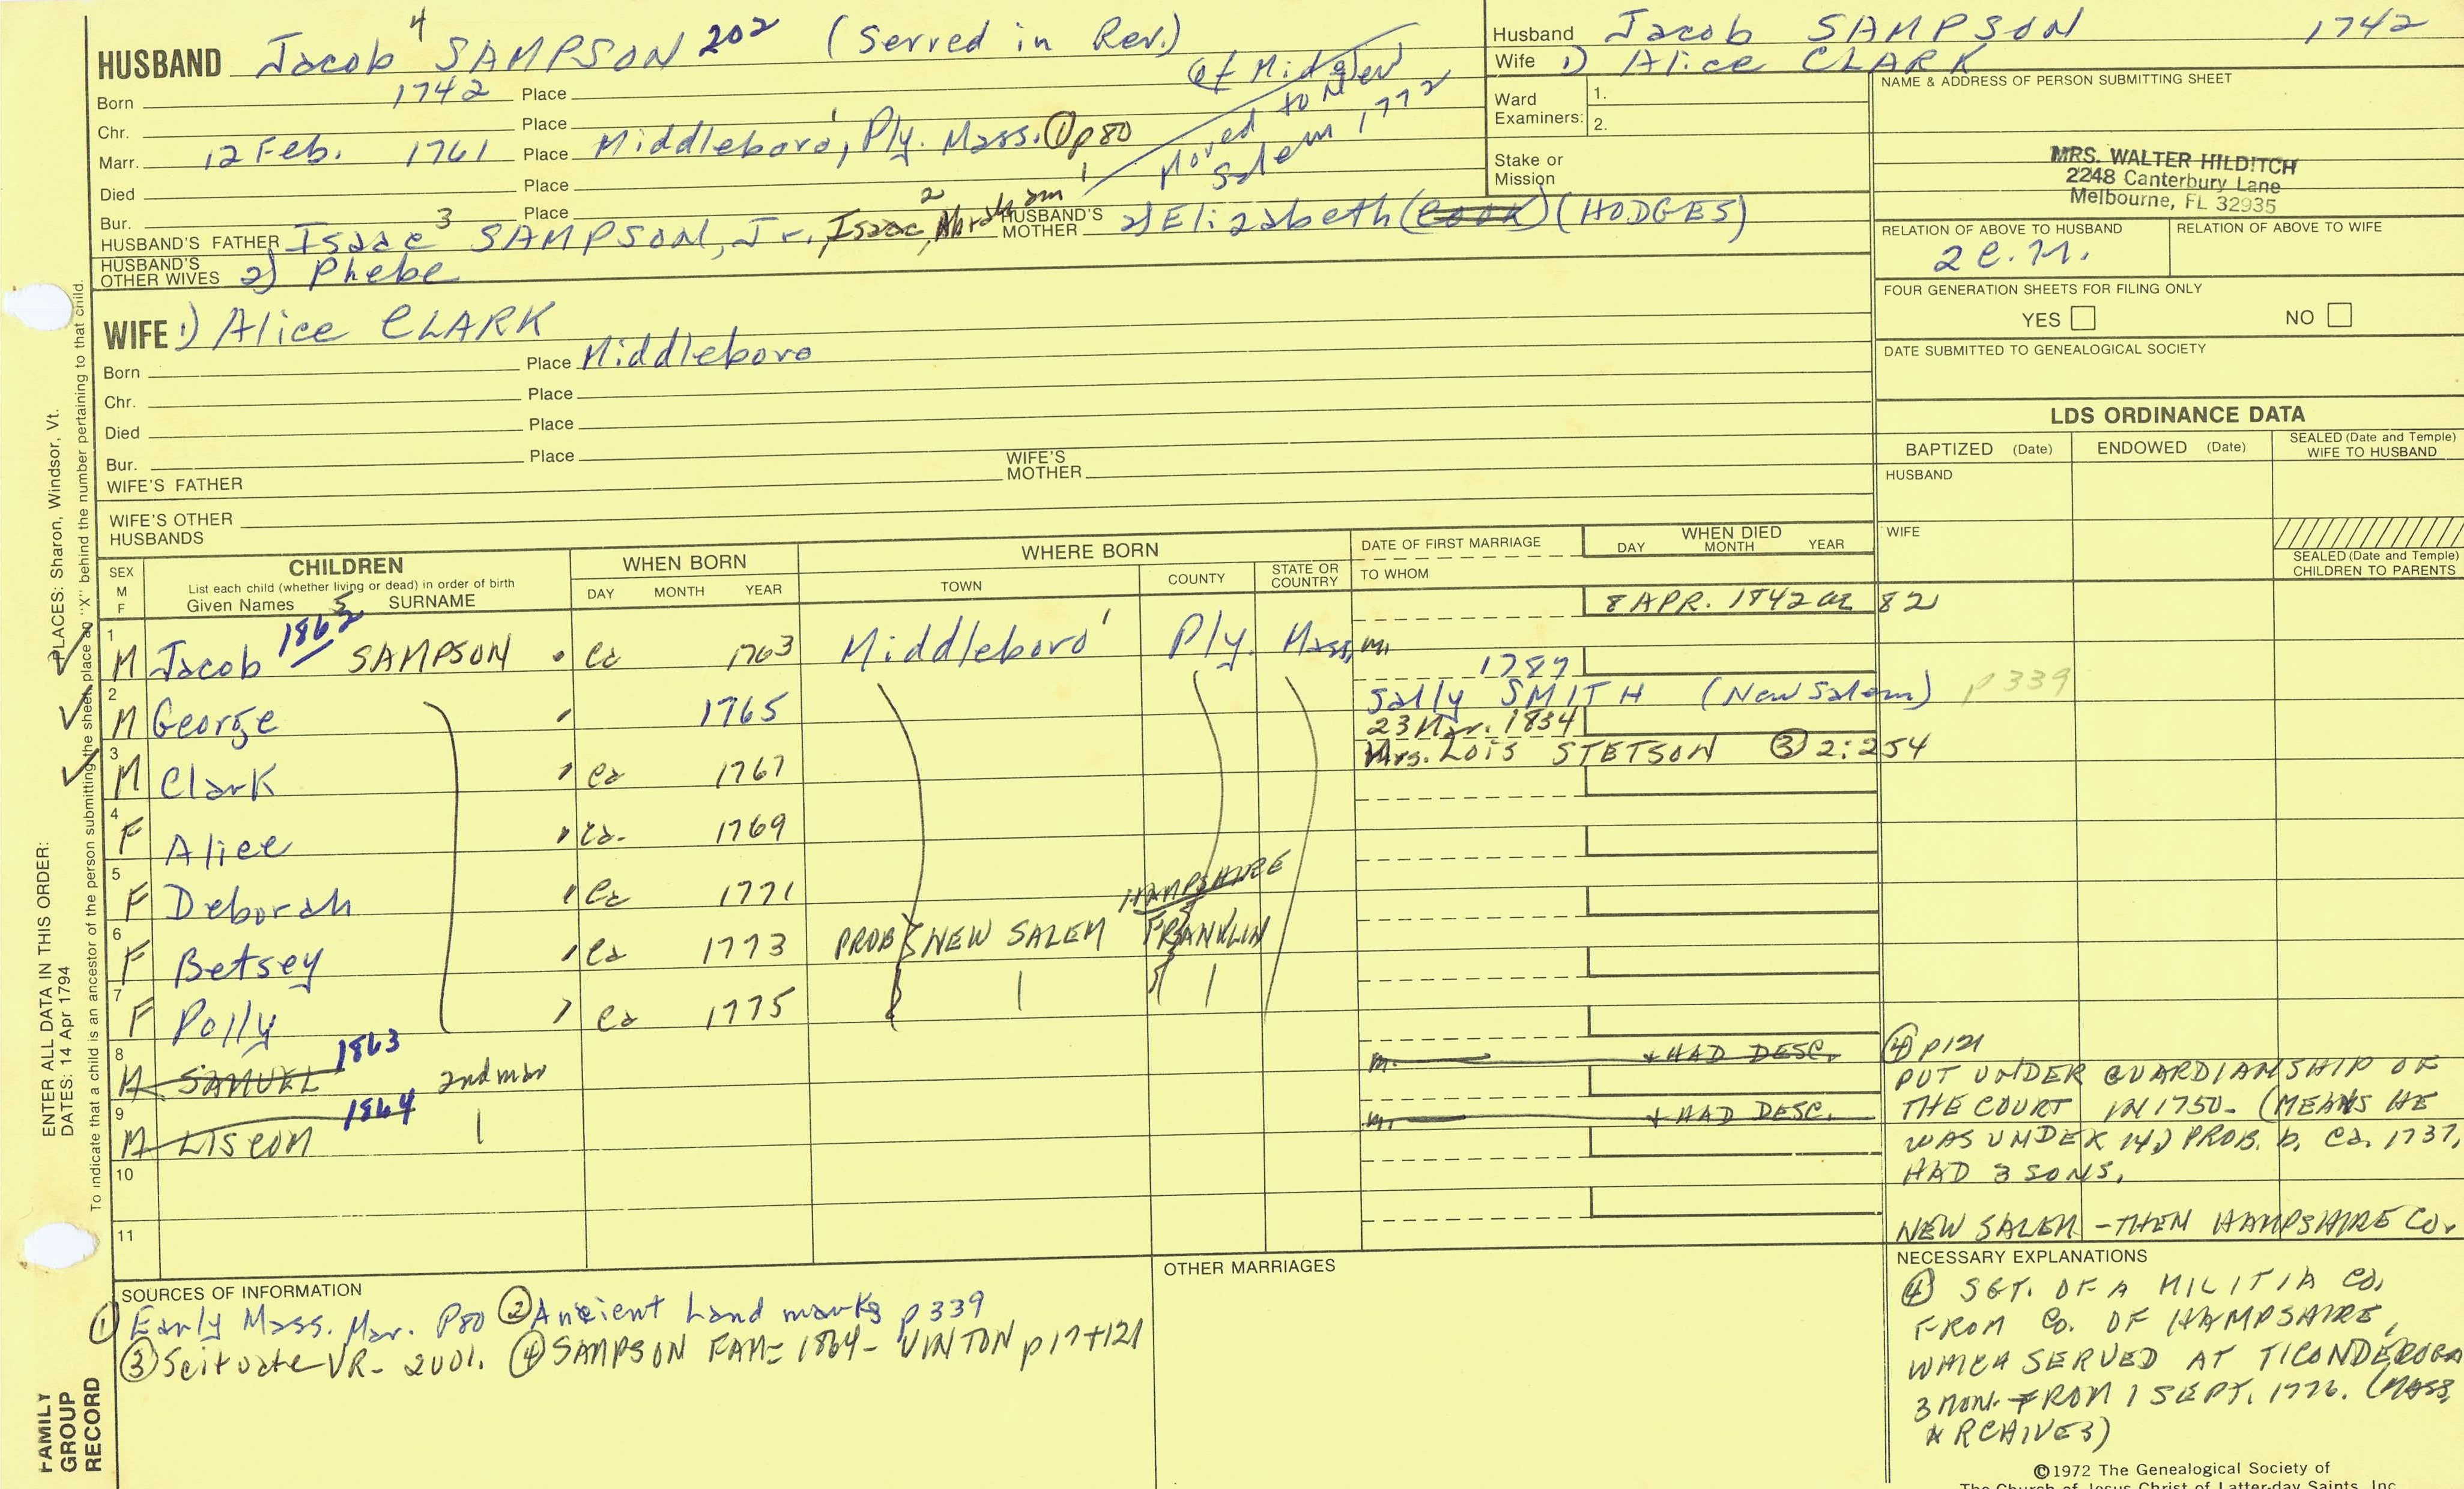 HUSBAND Jacob 4 SAMPSON 202 (Served in Rev.)
Born 1742 Place
Chr. Place
Marr. 12 Feb. 1761 Place Middleboro', Ply. Mass. ① p80
Died Place
Bur. Place
Moved to New Salem 1772
HUSBAND'S FATHER Isaac 3 SAMPSON, Jr., Isaac 2, Abraham 1 HUSBAND'S MOTHER 2) Elizabeth (COOK) (HODGES)
HUSBAND'S OTHER WIVES 2) Phebe
Husband Jacob SAMPSON 1742
Wife 1) Alice CLARK
Ward Examiners: 1.
2.
Stake or Mission
NAME & ADDRESS OF PERSON SUBMITTING SHEET
MRS. WALTER HILDITCH
2248 Canterbury Lane
Melbourne, FL 32935
RELATION OF ABOVE TO HUSBAND RELATION OF ABOVE TO WIFE
FOUR GENERATION SHEETS FOR FILING ONLY
YES NO
DATE SUBMITTED TO GENEALOGICAL SOCIETY
WIFE 1) Alice CLARK
Born Place Middleboro
Chr. Place
Died Place
Bur. Place
WIFE'S FATHER WIFE'S MOTHER
WIFE'S OTHER HUSBANDS
LDS ORDINANCE DATA
BAPTIZED (Date) ENDOWED (Date) SEALED (Date and Temple) WIFE TO HUSBAND
HUSBAND
WIFE
SEALED (Date and Temple) CHILDREN TO PARENTS
SEX M F CHILDREN List each child (whether living or dead) in order of birth Given Names SURNAME
WHEN BORN DAY MONTH YEAR
WHERE BORN TOWN COUNTY STATE OR COUNTRY
DATE OF FIRST MARRIAGE TO WHOM
WHEN DIED DAY MONTH YEAR
8 APR. 1842 ae 82
1 M Jacob 5 1862 SAMPSON ca 1763 Middleboro' Ply. Mass. m.
1787
2 M George 1765 Sally SMITH (New Salem) p 339
23 Mar. 1834
Mrs. Lois STETSON ③ 2:254
3 M Clark ca 1767
4 F Alice ca. 1769
5 F Deborah ca 1771
HAMPSHIRE
6 F Betsey ca 1773 PROB NEW SALEM FRANKLIN
7 F Polly ca 1775
8 M SAMUEL 1863 2nd mar m. + HAD DESC.
9 M LISCOM 1864 m. + HAD DESC.
10
11
④ p121
PUT UNDER GUARDIANSHIP OF
THE COURT IN 1750- (MEANS HE
WAS UNDER 14) PROB. b. ca. 1737,
HAD 3 SONS.
NEW SALEM - THEN HAMPSHIRE CO.
SOURCES OF INFORMATION
① Early Mass. Mar. P80 ② Ancient Land marks p 339
③ Scituate VR- 2 vol. ④ SAMPSON FAM= 1864- VINTON p 17+121
OTHER MARRIAGES
NECESSARY EXPLANATIONS
④ SGT. OF A MILITIA CO.
FROM CO. OF HAMPSHIRE,
WHICH SERVED AT TICONDEROGA
3 MON. FROM 1 SEPT. 1776. (MASS.
ARCHIVES)
©1972 The Genealogical Society of
The Church of Jesus Christ of Latter-day Saints, Inc.
ENTER ALL DATA IN THIS ORDER:
DATES: 14 Apr 1794
PLACES: Sharon, Windsor, Vt.
To indicate that a child is an ancestor of the person submitting the sheet, place an "X" behind the number pertaining to that child.
FAMILY
GROUP
RECORD